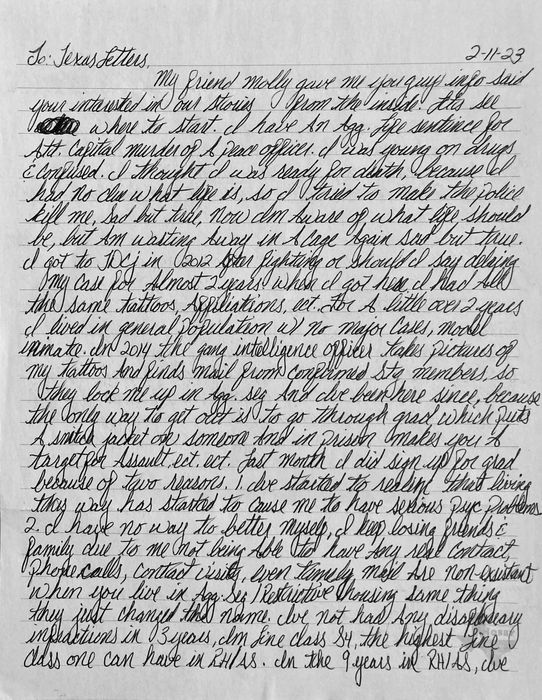 To: Texas Letters, 2-11-23
My friend Molly gave me you guys info said
your interested in our stories from the inside. Lets see
where to start. I have an Agg. Life sentence for
Att. Capital murder of A peace officer. I was young on drugs
& confused. I thought I was ready for death, because I
had no clue what life is, so I tried to make the police
kill me, sad but true, now Im Aware of what life should
be, but Am wasting Away in A cage Again sad but true.
I got to TDCJ in 2012 after fighting or should I say delaying
my case for Almost 2 years. when I got here, I had All
the same tattoos, Affiliations, ect. for A little over 2 years
I lived in general population w/ no major cases, model
inmate. In 2014 the gang intelligence officer takes pictures of
my tattoos And finds mail from confirmed stg members, so
they lock me up in Agg. seg And Ive been here since, because
the only way to get out is to go through grad which puts
A snitch jacket on someone And in prison makes you A
target for Assault, ect. ect. Last month I did sign up for grad
because of two reasons. 1. Ive started to realize that living
this way has started to cause me to have serious psyc problems
2. I have no way to better myself, I keep losing friends &
family due to me not being Able to have Any real contact,
phone calls, contact visits, even timely mail Are non-existant
when you live in Agg. Seg / Restrictive housing same thing
they just changed the name. Ive not had Any disaplenary
infractions in 3 years, Im line class S4, the highest line
class one can have in RH/AS. In the 9 years in RH/AS, Ive